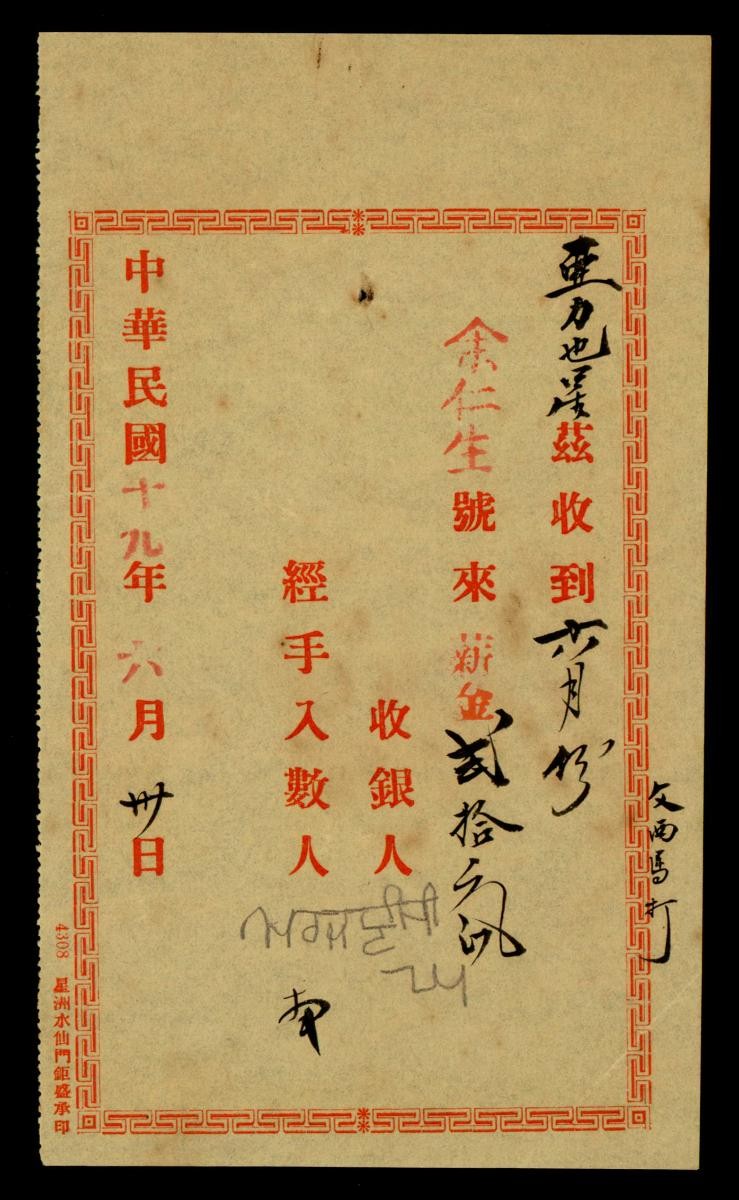 亜力也 茲收到六月份
余仁生號來薪金弍拾元
收銀人
經手入數人
中華民國十九年六月卅日
文西馬打
4308 星洲水仙門鉅盛承印